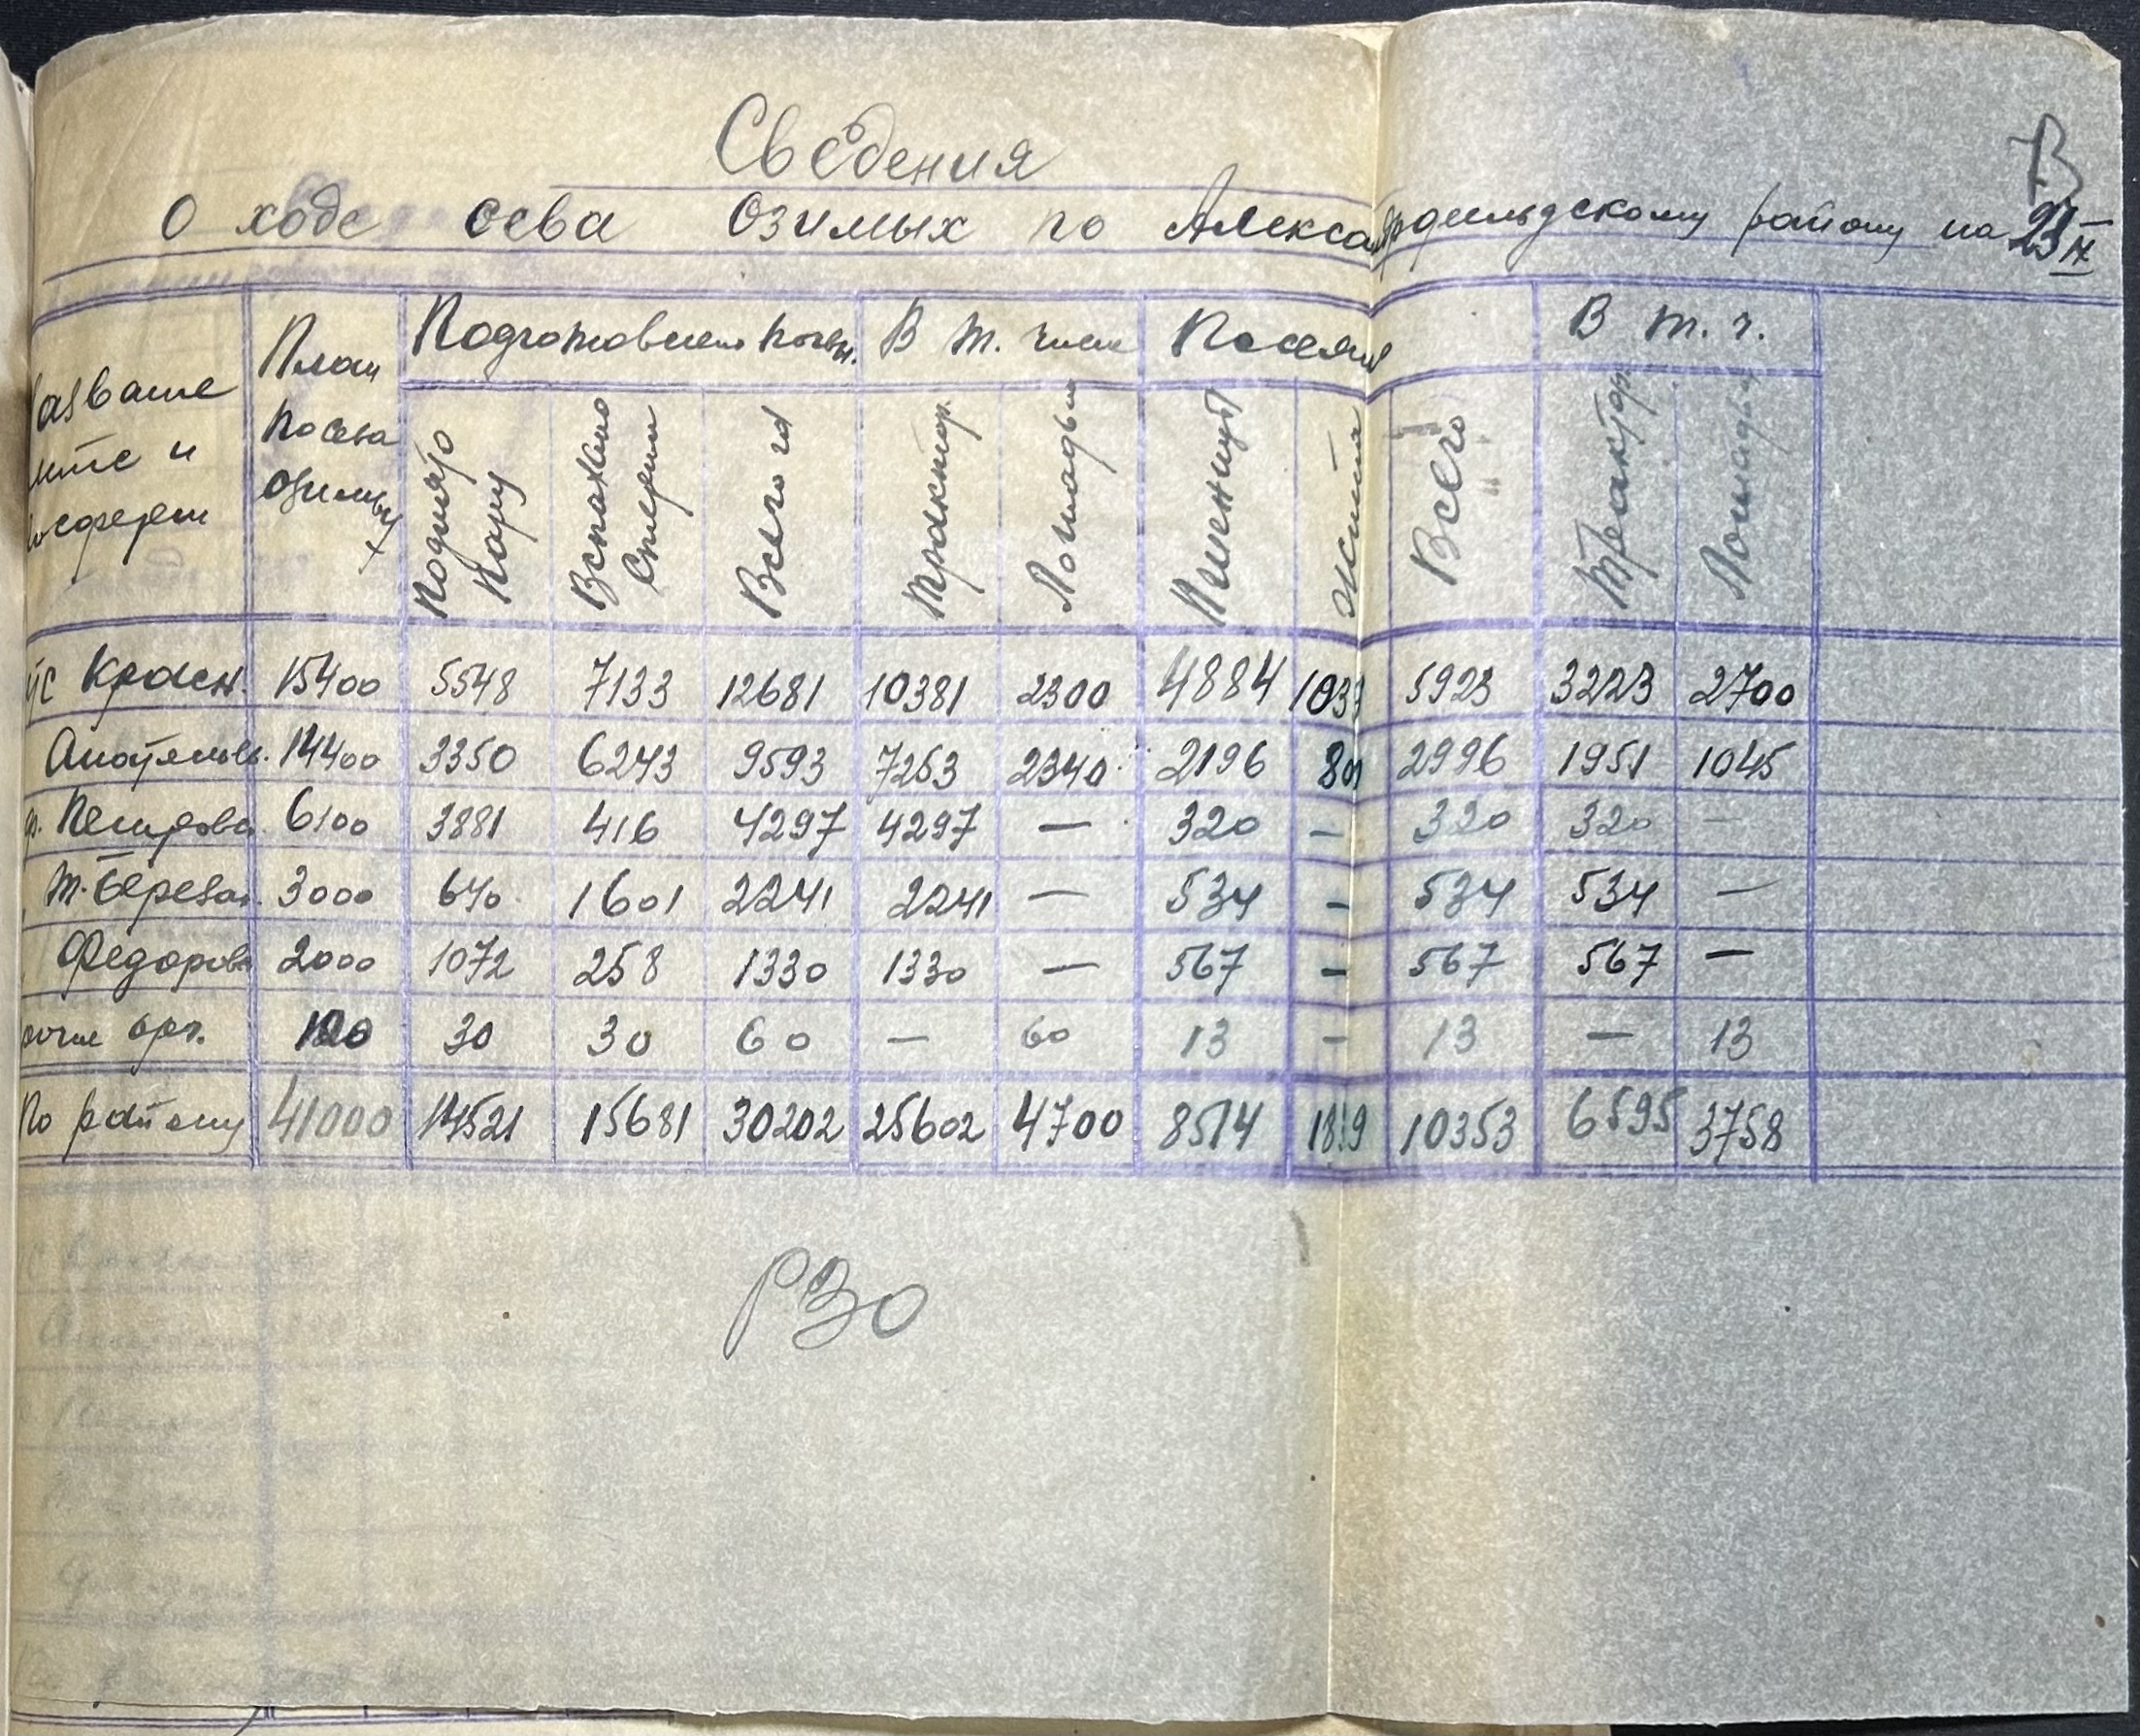 Сведения
В
О ходе сева озимых по Александрфельдскому району на 23/IX
План посева озимых
Подготовлено почвы
В т. числе
Посеяно
В т. ч.
Поднято пару
Вспахано стерни
Всего га
Трактор.
Лошадьми
Пшеницы
Жита
Всего
Трактор
Лошадьми
Красн. 15400 5548 7133 12681 10381 2300 4884 103 5923 3223 2700
14400 3350 6243 9593 7253 2340 2196 80 2996 1951 1045
6100 3881 416 4297 4297 — 320 – 320 320 –
3000 640 1601 2241 2241 — 534 – 534 534 —
Федоров 2000 1072 258 1330 1330 — 567 – 567 567 —
100 30 30 60 — 60 13 – 13 — 13
По району 41000 14521 15681 30202 25602 4700 8514 18 9 10353 6595 3758
РЗО